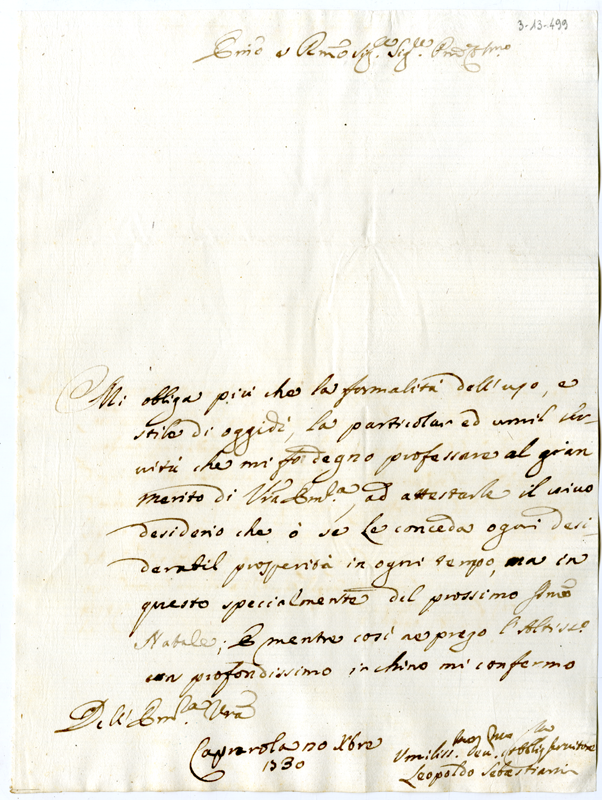 3-13-499
Em̃o e Rem̃o Sig.re Sig.re
Mi obliga più che la formalità dell'uso, e
stile di oggidì, la particolar ed umil ser-
vitù che mi fo degno professare al gran
merito di Vrã Em.za, ad attestarle il vivo
desiderio che ò se Le conceda ogni desi-
derabil prosperità in ogni tempo, ma in
questo specialmente del prossimo
Natale; E mentre così ne prego l'Altiss.o
con profondissimo inchino mi confermo
Dell'Em.za Vrã
Caprarola 20 Xbre
1730
Umiliss. Dev. Obblig. Servitore
Leopoldo Sebastiani